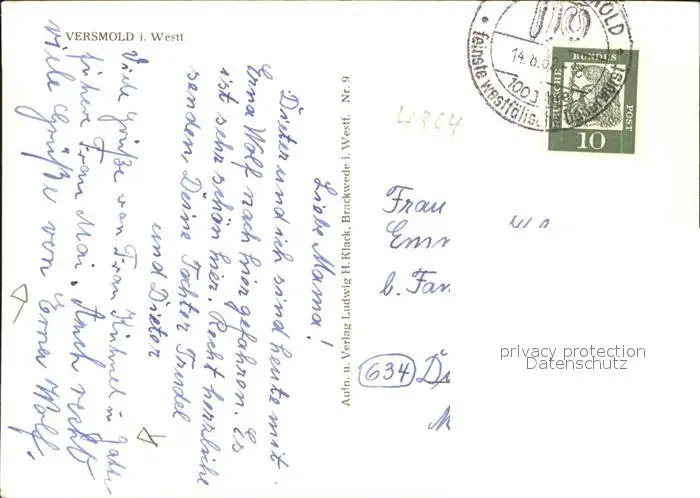 VERSMOLD i. Westf.
Liebe Mama!
Dieter und ich sind heute mit
Erna Wolf nach hier gefahren. Es
ist sehr schön hier. Recht herzliche
senden, Deine Tochter Trudel
und Dieter
Viele Grüße von Frau in
früher Frau Mai. Auch recht
viele Grüße von Erna Wolf.
Aufn. u. Verlag Ludwig H. Klack, Brackwede i. Westf. Nr. 9
4804
14.8.62
feinste westfälische
BUNDES
POST
10
Frau
b. Fam
634
privacy protection
Datenschutz